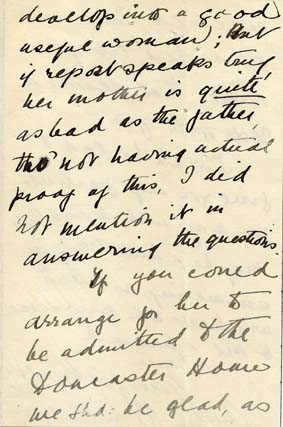 develop into a good
useful woman); But
if report speaks true,
her mother is quite
as bad as the father,
tho' not having actual
proof of this, I did
not mention it in
answering the questions.
If you could
arrange for her to
be admitted to the
Doncaster Home
we shd: be glad, as